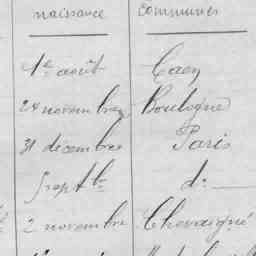 naissance communes
1er août Caen
24 novembre Boulogne
31 décembre Paris
7bre do
2 novembre Chevaigné